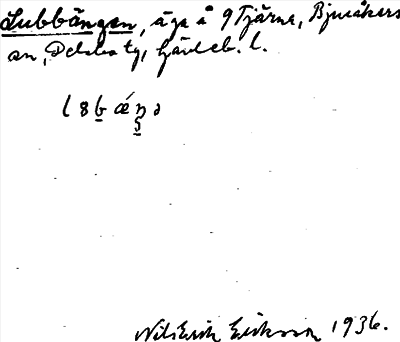 Lubbängen, äga å 9 Tjärne, Bjuråkers
sn, Delsbo tg, Gävleb. l.
Nils Erik Eriksson 1936.